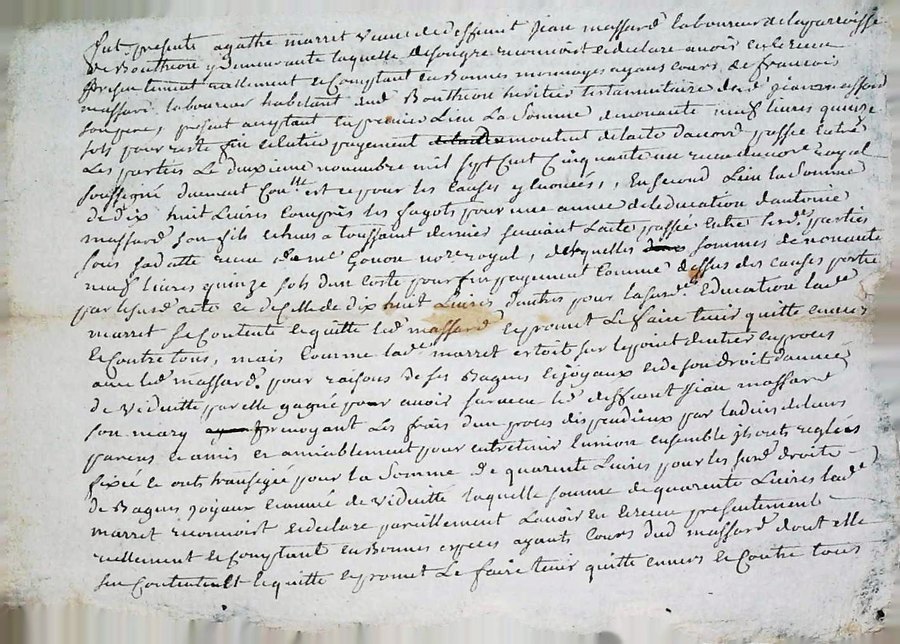 fut presente agathe marret veuve de deffeunt Jean massard laboureur de la parroisse
de Boutheon y demeurante laquelle de son gre reconnoist et declare avoir eu et receu
presentement reallement et Comptant en Bonnes monnoyes ayans cours de francois
massard laboureur habitant aud. Boutheon heritier testamentaire dud. jean massard
son pere, present acceptant en premier Lieu La Somme de nonante neuf livres quinze
sols pour reste fin et entier payement montent de l'acte d'accord passée entre
Les parties Le deuxieme novembre mil sept Cent Cinquante un receu du no.re royal
soussigné duement Con.llé et ce pour les causes y enoncées, En second Lieu la Somme
de dix huit Livres Compris les fagots pour une année de l'education d'antoine
massard son fils echue a toussaint dernier suivant l'acte passée entre lesd. parties
sous sa datte receu de me Gonon no.re royal, desquelles sommes de nonante
neuf livres quinze sols d'une Coste pour fin payement Comme dessus des causes portée
par le susd. acte et de Celle de dix huit Livres d'autres pour la susd. Education lad.
marret Se Contente et quitte led. massard et promet Le faire tenir quitte envers
et Contre tous, mais Comme lad. marret estoit sur le point d'entrer en proces
avec led. massard. pour raisons de ses Bagues et joyaux et de son droit d'année
de viduitté par elle gagné pour avoir surveceu led. deffeunt Jean massard
son mary prevoyant Les frais d'un proces dispendieux par l'advis de leurs
parens et amis et amiablement pour entretenir l'union ensemble ils ont reglées
fixée et ont transigée pour la Somme de quarente Livres pour les susd. droits
de Bagues joyaux et année de viduitté laquelle somme de quarente Livres lad.
marret reconnoist et declare pareillement L'avoir eu et receu presentement
reellement et Comptant en Bonnes especes ayants Cours dud. massard dont elle
s'en Contentent et quitte et promet Le faire tenir quitte envers et Contre tous